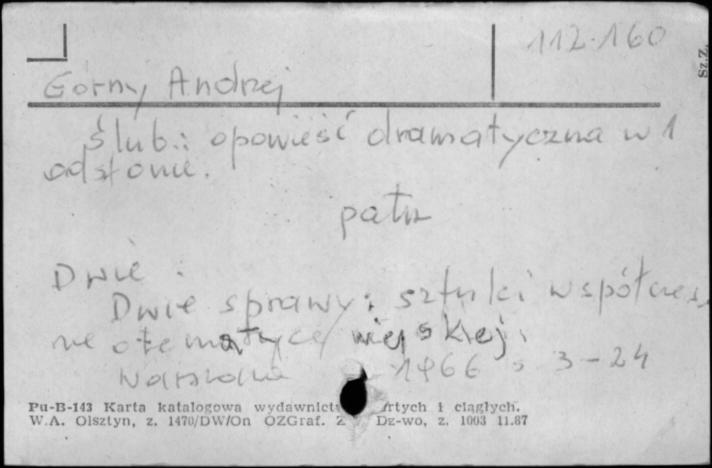 112-160
Sz.Z.
Górny Andrzej
Ślub.: opowieść dramatyczna w 1
odsłonie.
patrz
Dwie :
Dwie sprawy; sztuki współczes
ne o tematyce wiejskiej.
Warszawa 1966 s 3-24
Pu-B-143 Karta katalogowa wydawnictw rtych i ciągłych.
W.A. Olsztyn, z. 1470/DW/On OZGraf. Z Dz-wo, z. 1003 11.87